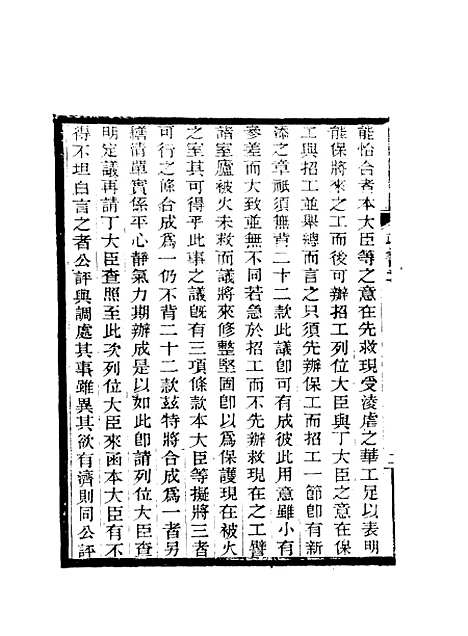 能恰合者本大臣等之意在先救現受淩虐之華工足以表明
能保將來之工而後可辦招工列位大臣與丁大臣之意在保
工與招工並舉總而言之只須先辦保工而招工一節卽有新
添之章祇須無背二十二款此議卽可有成彼此用意雖小有
參差而大致並無不同若急於招工而不先辦救現在之工譬
諸室廬被火未救而議將來修整堅固卽以為保護現在被火
之室其可得乎此事之議旣有三項條款本大臣等擬將三者
可行之條合成為一仍不背二十二款茲特將合成為一者另
繕清單實係平心靜氣力期辦成是以如此卽請列位大臣查
明定議再請丁大臣查照至此次列位大臣來函本大臣有不
得不坦白言之者公評與調處其事雖異其欲有濟則同公評